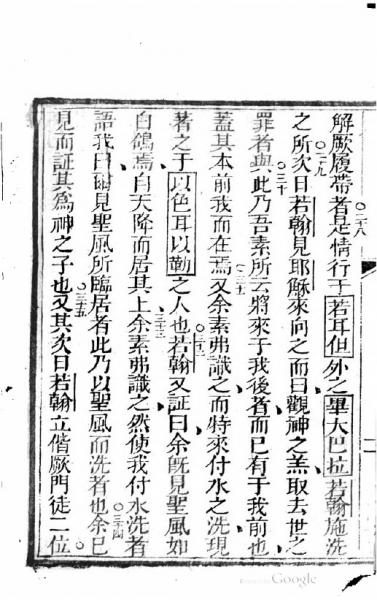 解厥履帶者是情行于若耳但外之畢大巴拉若翰施洗
之所次日若翰見耶穌來向之而曰觀神之羔取去世之
罪者與此乃吾素所云將來于我後者而已有于我前也
蓋其本前我而在焉又余素弗識之而特來付水之洗現
著之于以色耳以勒之人也若翰又証曰余既見聖風如
白鴿焉自天降而居其上余素弗識之然使我付水洗者
語我曰爾見聖風所臨居者此乃以聖風而洗者也余已
見而証其為神之子也又其次日若翰立偕厥門徒二位
○二八
○二九
○三十
○三一
○三二
○三三
○三四
○三五
Google